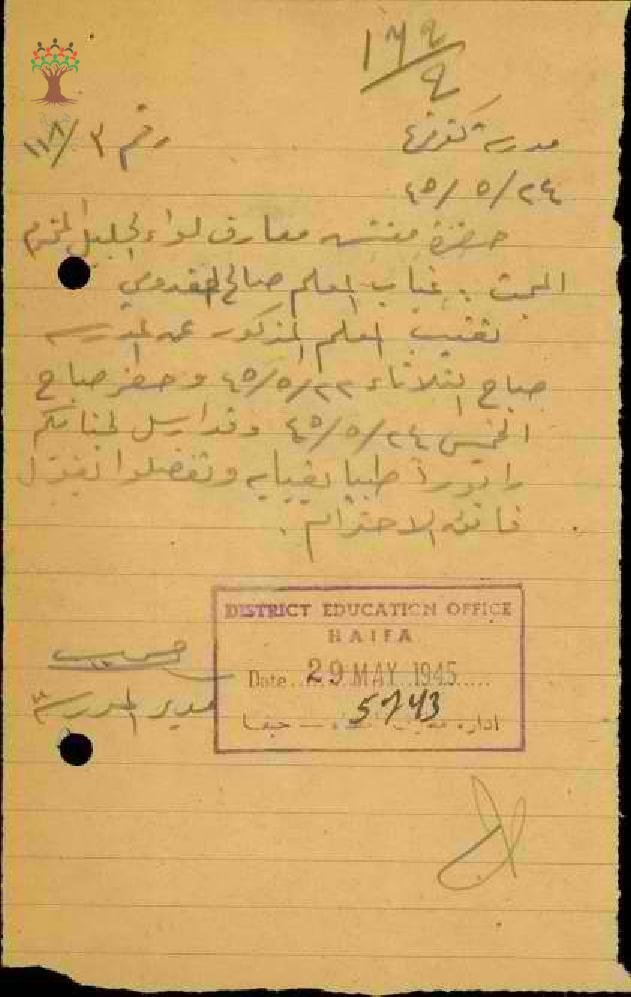 ١٣٩/٩
مدرسة
رقم ٣/١١٨
٢٤/٥/٤٥
حضرة مفتش معارف لواء الجليل المحترم
البحث : غياب المعلم صالح
تغيب المعلم المذكور عن المدرسه
صباح الثلاثاء ٢٢/٥/٤٥ وحضر صباح
الخميس ٢٤/٥/٤٥ وقد ارسل لجنابكم
طبيا بغيابه وتفضلوا بقبول
فائق الاحترام .
مدير المدرسه
DISTRICT EDUCATION OFFICE
HAIFA
Date 29 MAY 1945
5743
ادارة حيفا